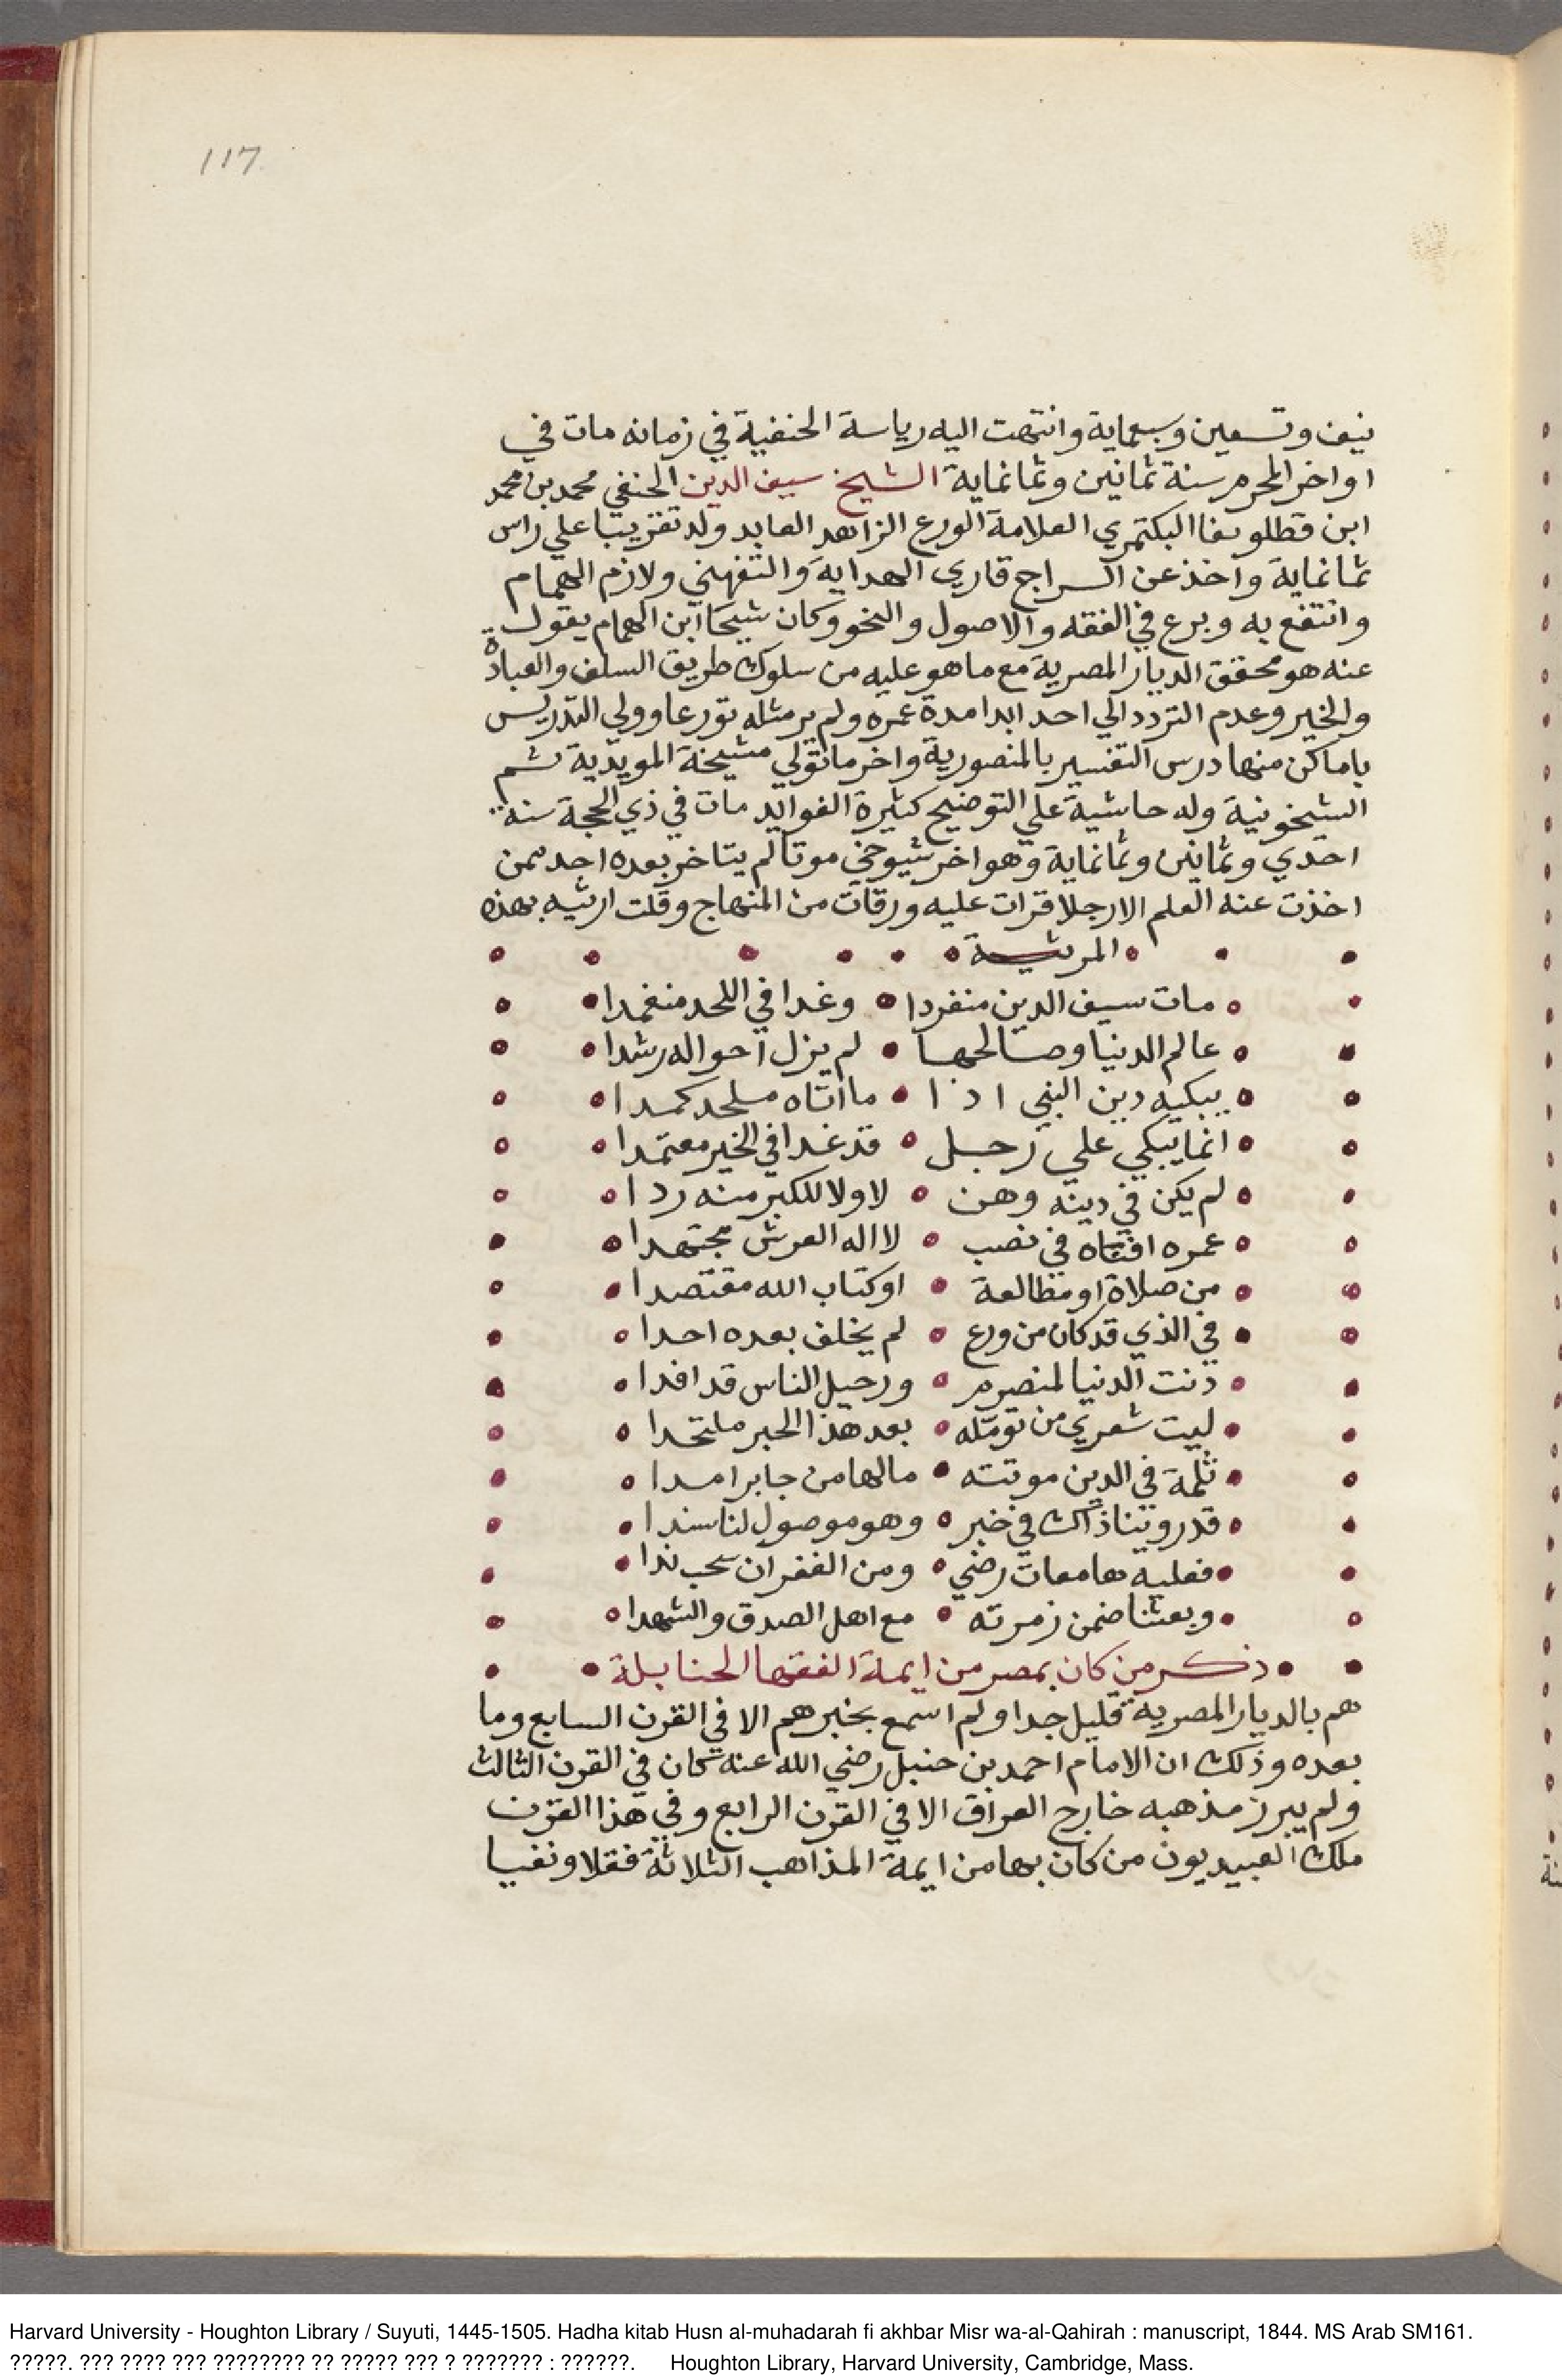 117
نيف وتسعين وسبعماية وانتهت اليه رياسة الحنفية في زمانه مات في
اواخر المحرم سنة ثمانين وثمانماية الشيخ سيف الدين الحنفي محمد بن محمد
ابن قطلوبغا البكتمري العلامة الورع الزاهد العابد ولد تقريبا علي راس
ثمانماية واخذ عن السراج قاري الهداية والتفهني ولازم الهمام
وانتفع به وبرع في الفقه والاصول والنحو وكان شيخنا ابن الهمام يقول
عنه هو محقق الديار المصرية مع ما هو عليه من سلوك طريق السلف والعبادة
والخير وعدم التردد الي احد ابدا مدة عمره ولم ير مثله تورعا وولي التدريس
باماكن منها درس التفسير بالمنصورية واخر ما تولي مشيخة المويدية ثم
الشيخونية وله حاشية علي التوضيح كثيرة الفوايد مات في ذي الحجة سنة
احدي وثمانين وثمانماية وهو اخر شيوخي موتا لم يتاخر بعده احد ممن
اخذت عنه العلم الا رجلا قرات عليه ورقات من المنهاج وقلت ارثيه بهذه
المرثية
مات سيف الدين منفردا وغدا في اللحد منغمدا
عالم الدنيا وصالحها لم يزل احواله رشدا
يبكيه دين النبي اذا ما اتاه ملحد كمدا
انما يبكي علي رجل قد غدا في الخير معتمدا
لم يكن في دينه وهن لا ولا للكبر منه ردا
عمره افناه في نصب لا اله العرش مجتهدا
من صلاة او مطالعة او كتاب الله مقتصدا
في الذي قد كان من ورع لم يخلف بعده احدا
دنت الدنيا لمنصرم ورحيل الناس قد افدا
ليت شعري من نومله بعد هذا الحبر ملتحدا
ثلمة في الدين موتته مالها من جابر امدا
قد روينا ذاك في خبر وهو موصول لنا سندا
فعليه هامعات رضي ومن الغفران سحب ندا
وبعثنا ضمن زمرته مع اهل الصدق والشهدا
ذكر من كان بمصر من ايمة الفقها الحنابلة
هم بالديار المصرية قليل جدا ولم اسمع بخبرهم الا في القرن السابع وما
بعده وذلك ان الامام احمد بن حنبل رضي الله عنه كان في القرن الثالث
ولم يبرز مذهبه خارج العراق الا في القرن الرابع وفي هذا القرن
ملك العبيديون من كان بها من ايمة المذاهب الثلاثة فقلا ونفيا
Harvard University - Houghton Library / Suyuti, 1445-1505. Hadha kitab Husn al-muhadarah fi akhbar Misr wa-al-Qahirah : manuscript, 1844. MS Arab SM161.
?????. ??? ???? ??? ???????? ?? ????? ??? ? ??????? : ??????. Houghton Library, Harvard University, Cambridge, Mass.